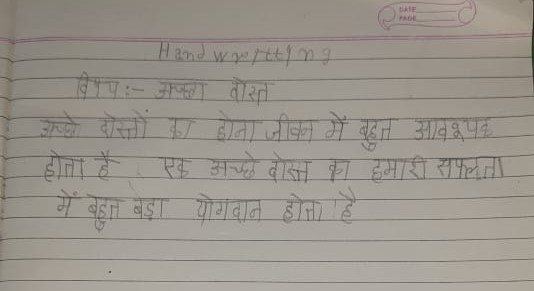 DATE
PAGE
Handwritting
विषय :- अच्छा दोस्त
अच्छे दोस्तों का होना जीवन में बहुत आवश्यक
होता है एक अच्छे दोस्त का हमारी सफलता
में बहुत बड़ा योगदान होता है